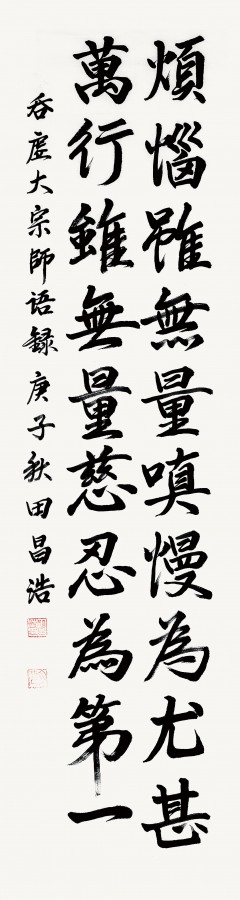 煩惱雖無量嗔慢為尤甚
萬行雖無量慈忍為第一
吞虛大宗師语録庚子秋田昌浩